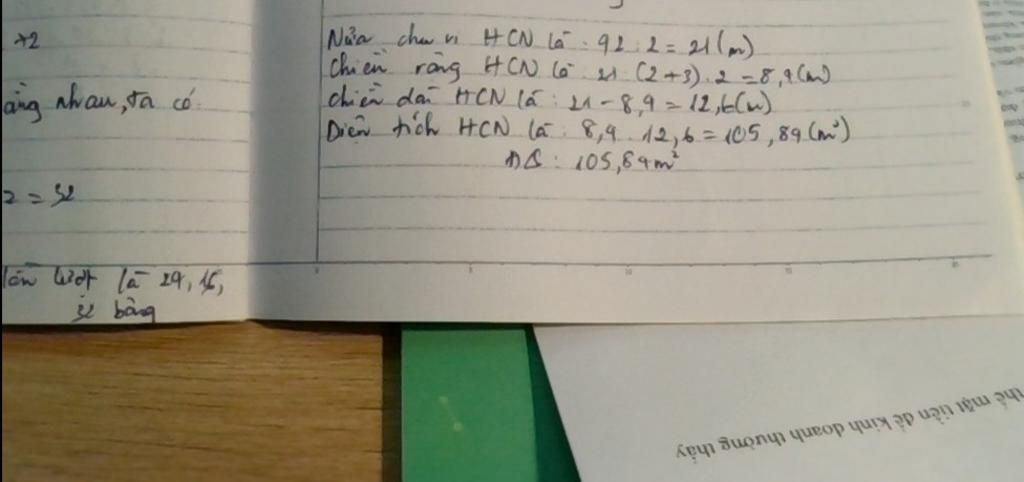 +2
ằng nhau, ta có:
2 = 32
lần lượt là 24, 16,
32 bằng
Nửa chu vi HCN là: 42 : 2 = 21 (m)
Chiều rộng HCN là: 21 : (2+3) . 2 = 8,4 (m)
Chiều dài HCN là: 21 - 8,4 = 12,6 (m)
Diện tích HCN là: 8,4 . 12,6 = 105,84 (m²)
ĐS: 105,84 m²
thẻ mặt tiền để kinh doanh thường thấy